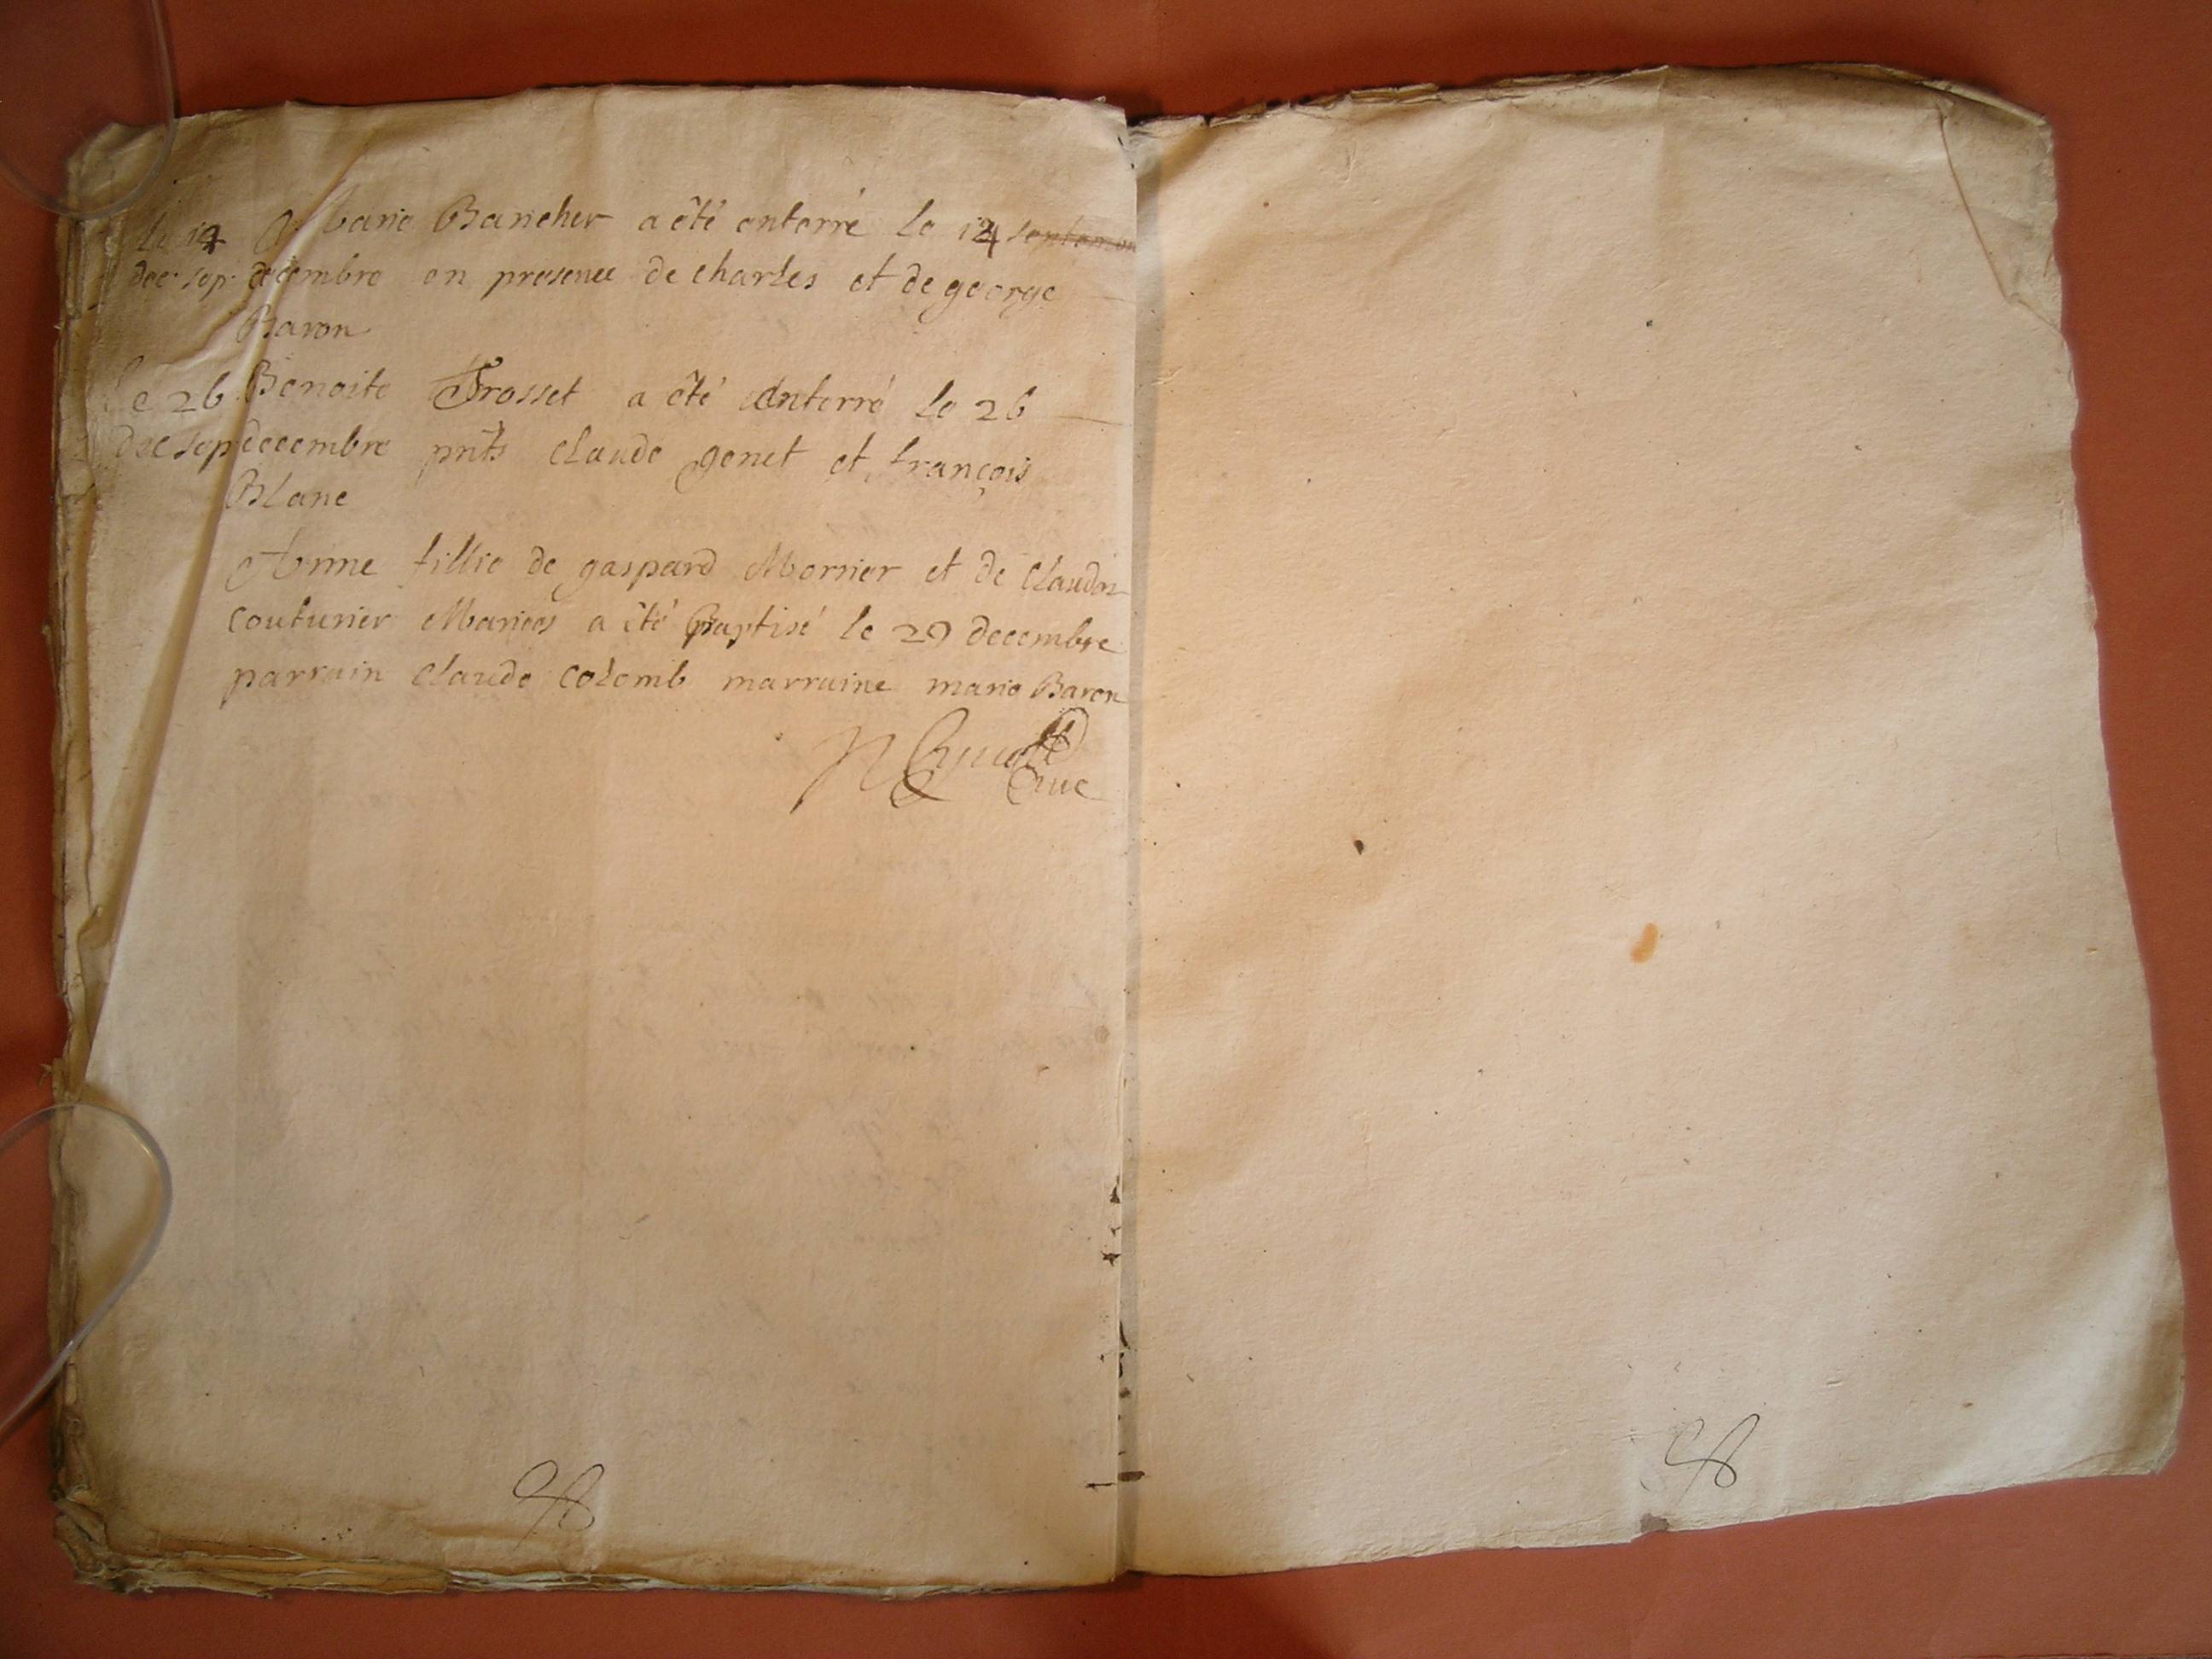 le 14 Marie Bancher a êté enterré le 14 septembre
dec. sep. decembre en presence de charles et de george
Baron
Le 26 Benoite Trosset a êté enterré le 26
dec sep decembre pnts claude genet et françois
Blanc
Anne fillie de gaspard Mornier et de Claudin
couturier Mariés a êté Baptisé le 29 decembre
parrain claude colomb marraine marie Baron
Curé